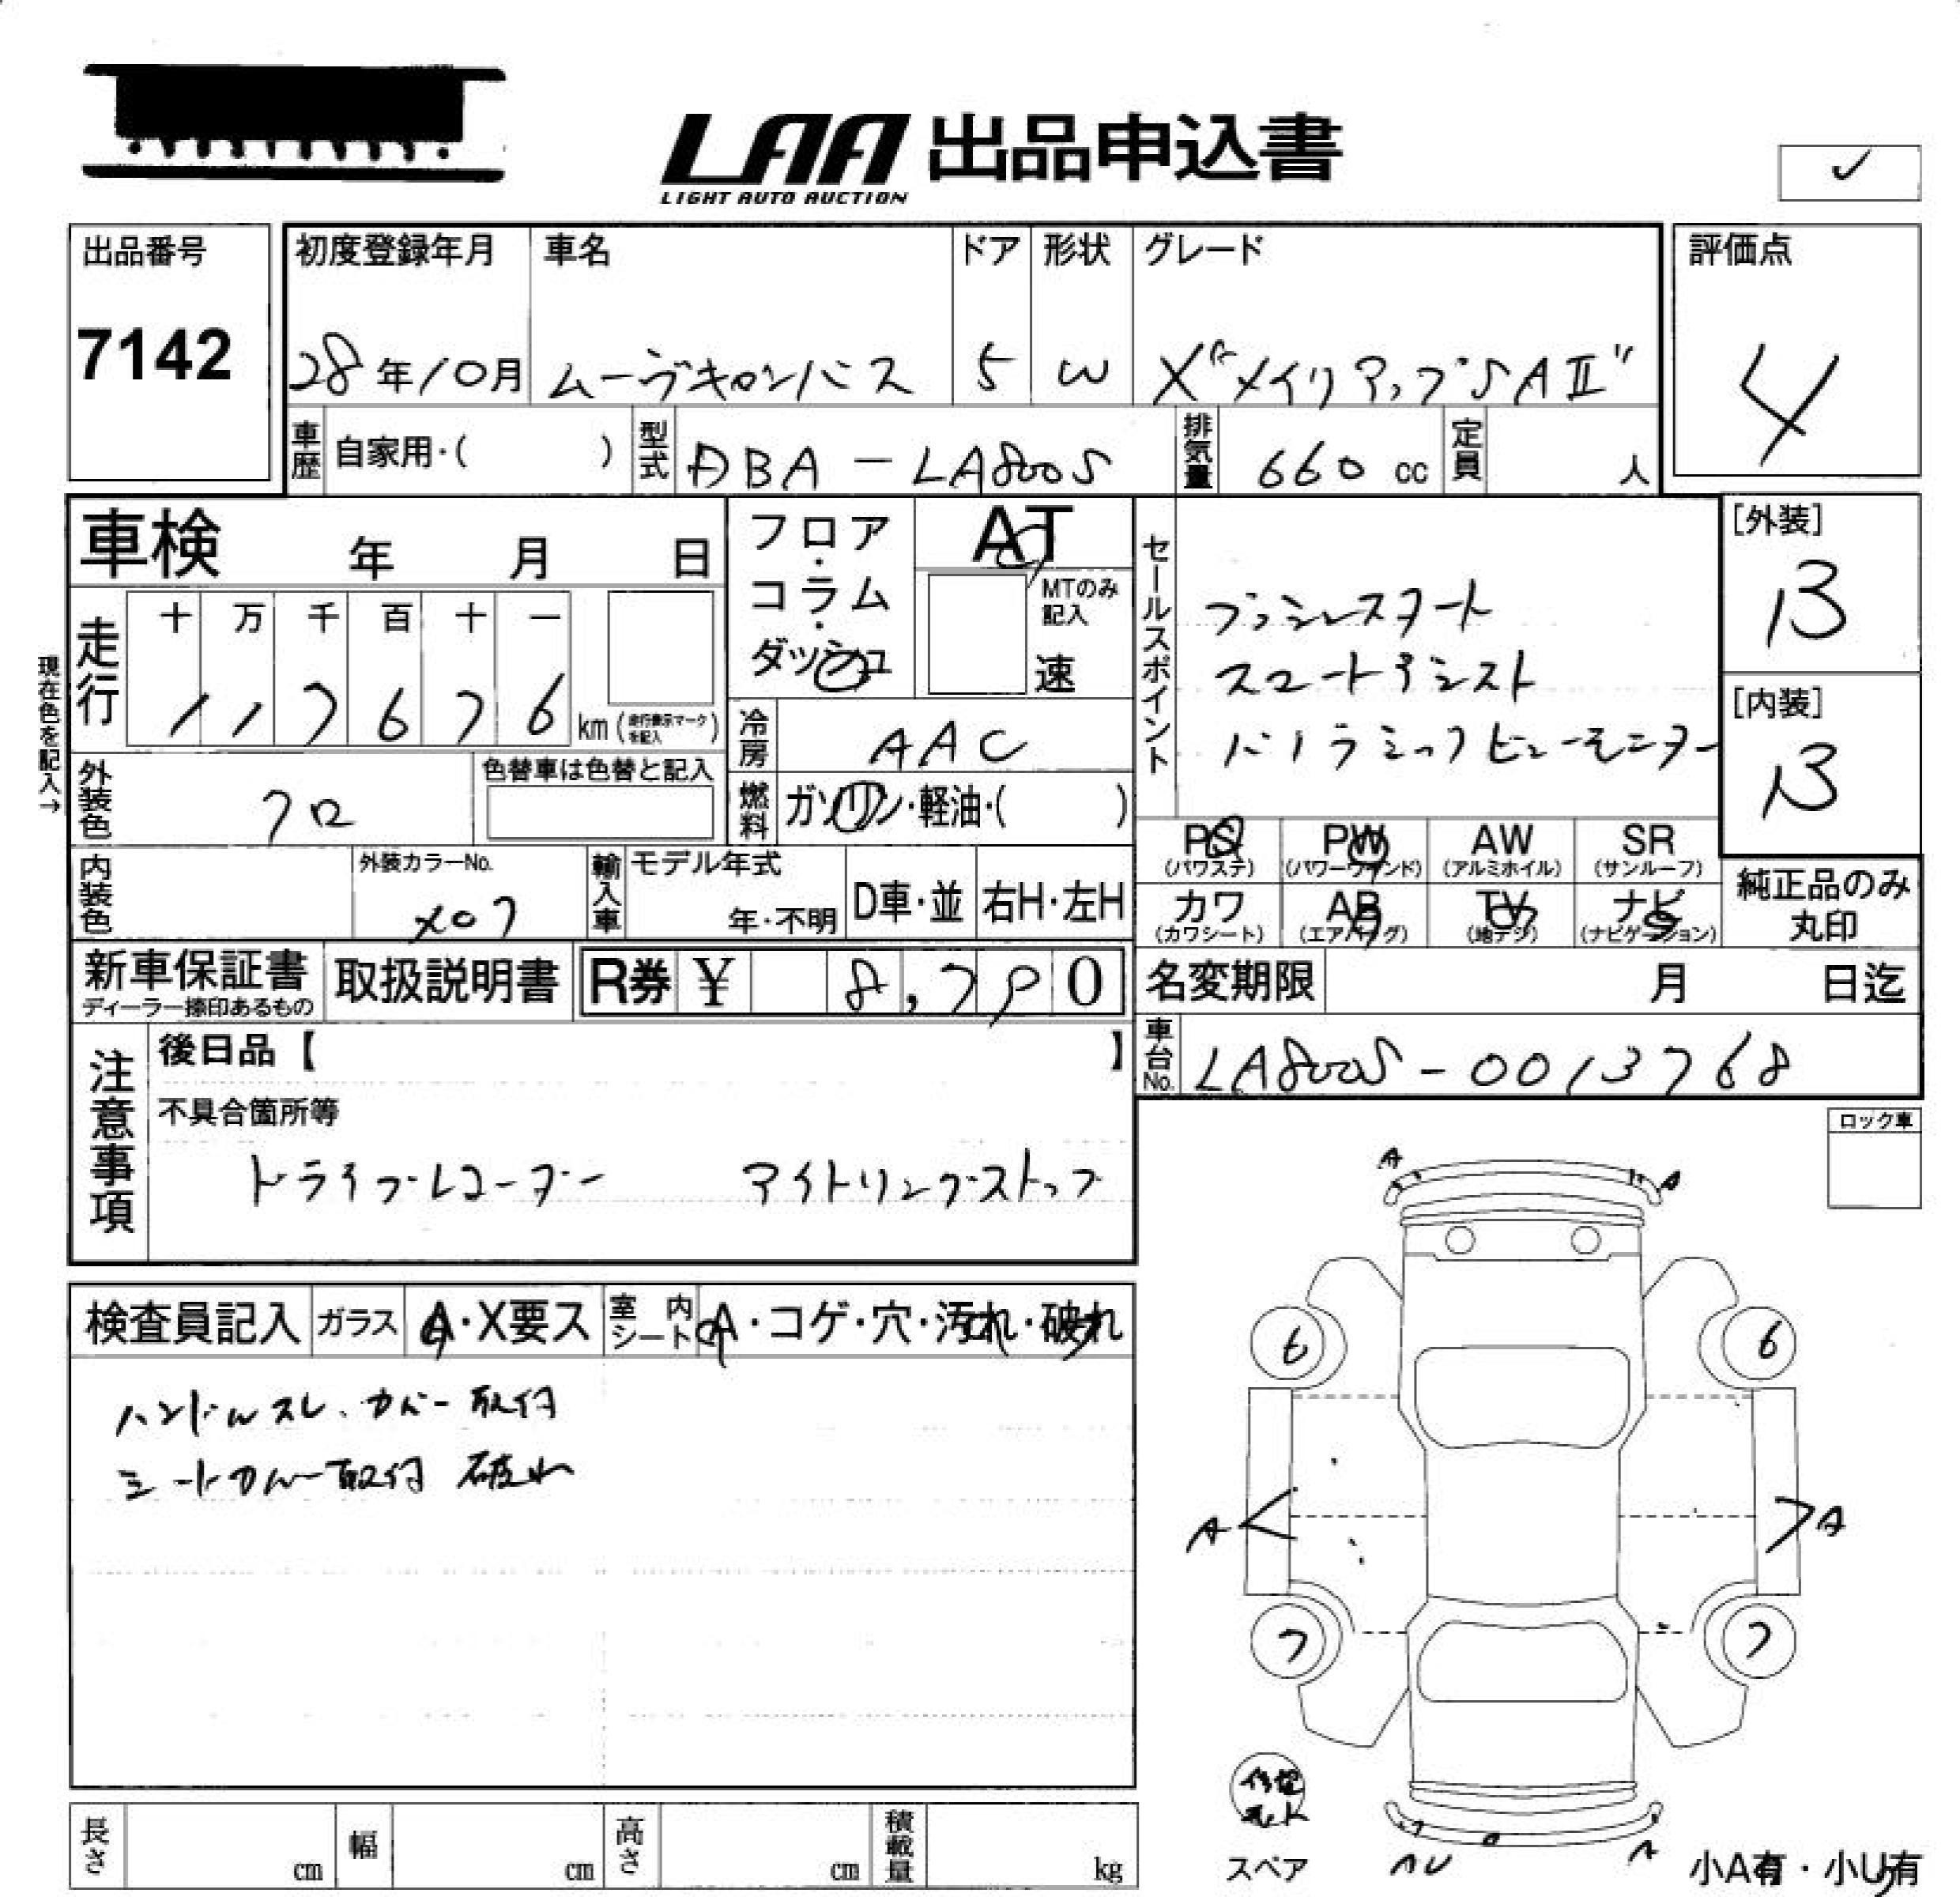 LAA 出品申込書
LIGHT AUTO AUCTION
✓
出品番号
7142
初度登録年月
28年10月
車名
ムーヴキャンバス
ドア
5
形状
W
グレード
X"メイクアップSAⅡ"
評価点
4
車歴
自家用・( )
型式
DBA-LA800S
排気量
660 cc
定員
人
車検 年 月 日
現在色を記入→
走行
十 万 千 百 十 一
1 1 7 6 7 6 km (走行表示マークを記入)
フロア・コラム・ダッシュ
AT
MTのみ記入
速
冷房
AAC
燃料
ガソリン・軽油・( )
外装色
クロ
色替車は色替と記入
内装色
外装カラーNo.
X07
輸入車
モデル年式
年・不明
D車・並
右H・左H
セールスポイント
プッシュスタート
スマートアシスト
パノラミックビューモニター
[外装]
B
[内装]
B
PS (パワステ)
PW (パワーウィンド)
AW (アルミホイル)
SR (サンルーフ)
カワ (カワシート)
AB (エアバッグ)
TV (地デジ)
ナビ (ナビゲーション)
純正品のみ丸印
新車保証書
ディーラー捺印あるもの
取扱説明書
R券 ¥ 8,790
名変期限 月 日迄
車台No.
LA800S-0013768
注意事項
後日品【 】
不具合箇所等
ドライブレコーダー アイドリングストップ
ロック車
検査員記入
ガラス
A・X要ス
室内シート
A・コゲ・穴・汚れ・破れ
ハンドルスレ、カバー取付
シートカバー取付 破れ
A A
6 6
A A
7 7
修理キット
スペア
AU A
小A有・小U有
長さ cm
幅 cm
高さ cm
積載量 kg